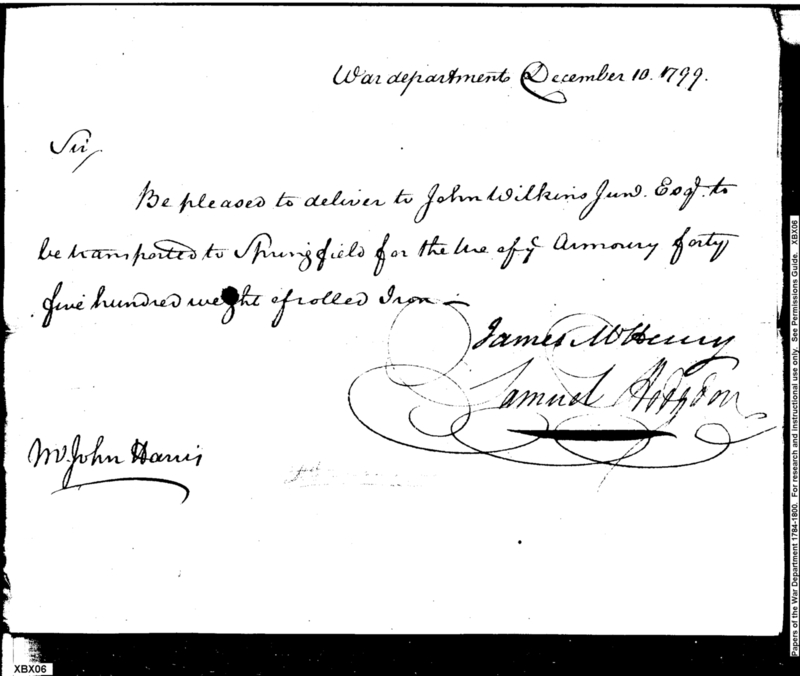 War department December 10. 1799.
Sir,
Be pleased to deliver to John Wilkins Junr. Esqr. to
be transported to Springfield for the Use of ye Armoury forty
five hundred weight of rolled Iron —
James McHenry
Samuel Hodgdon
Mr. John Harris
Papers of the War Department 1784-1800. For research and instructional use only. See Permissions Guide. XBX06
XBX06